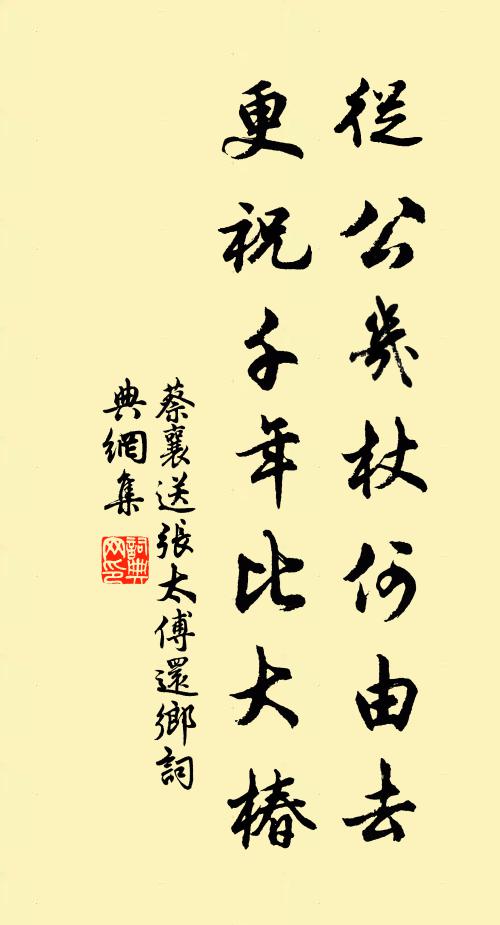 從公幾杖何由去
更祝千年比大椿
蔡襄送張太傅還鄉詞
典網集
詞典網印